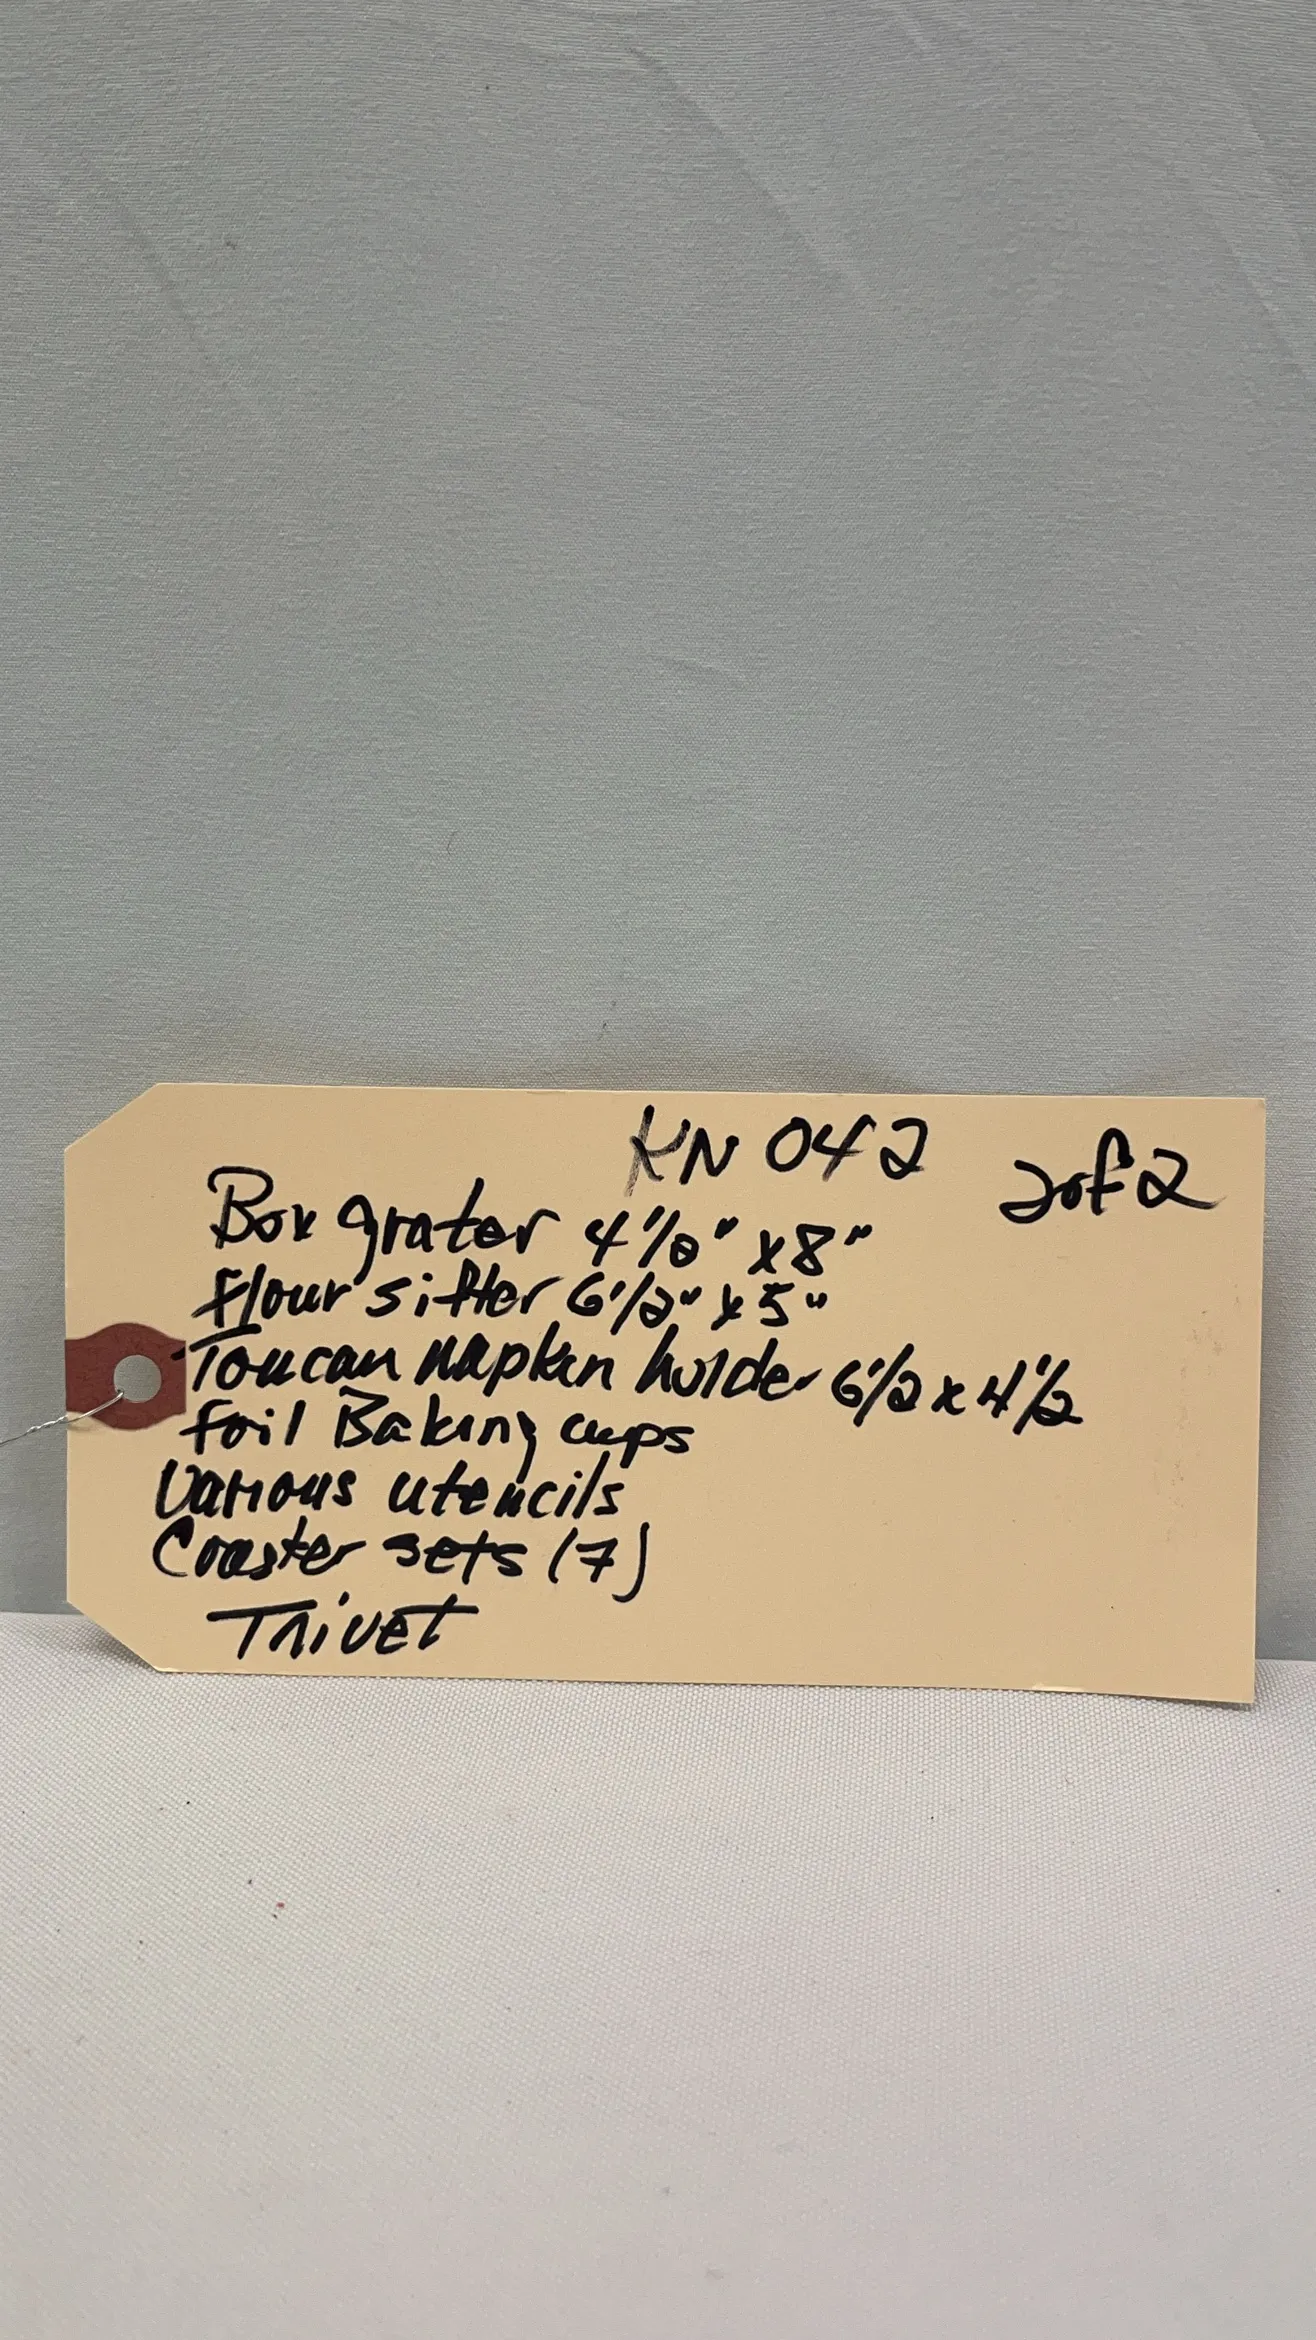 KN 042
2 of 2
Box grater 4 1/2" x 8"
Flour sifter 6 1/2" x 5"
Toucan napkin holder 6 1/2 x 4 1/2
Foil Baking cups
Various utencils
Coaster sets (7)
Trivet